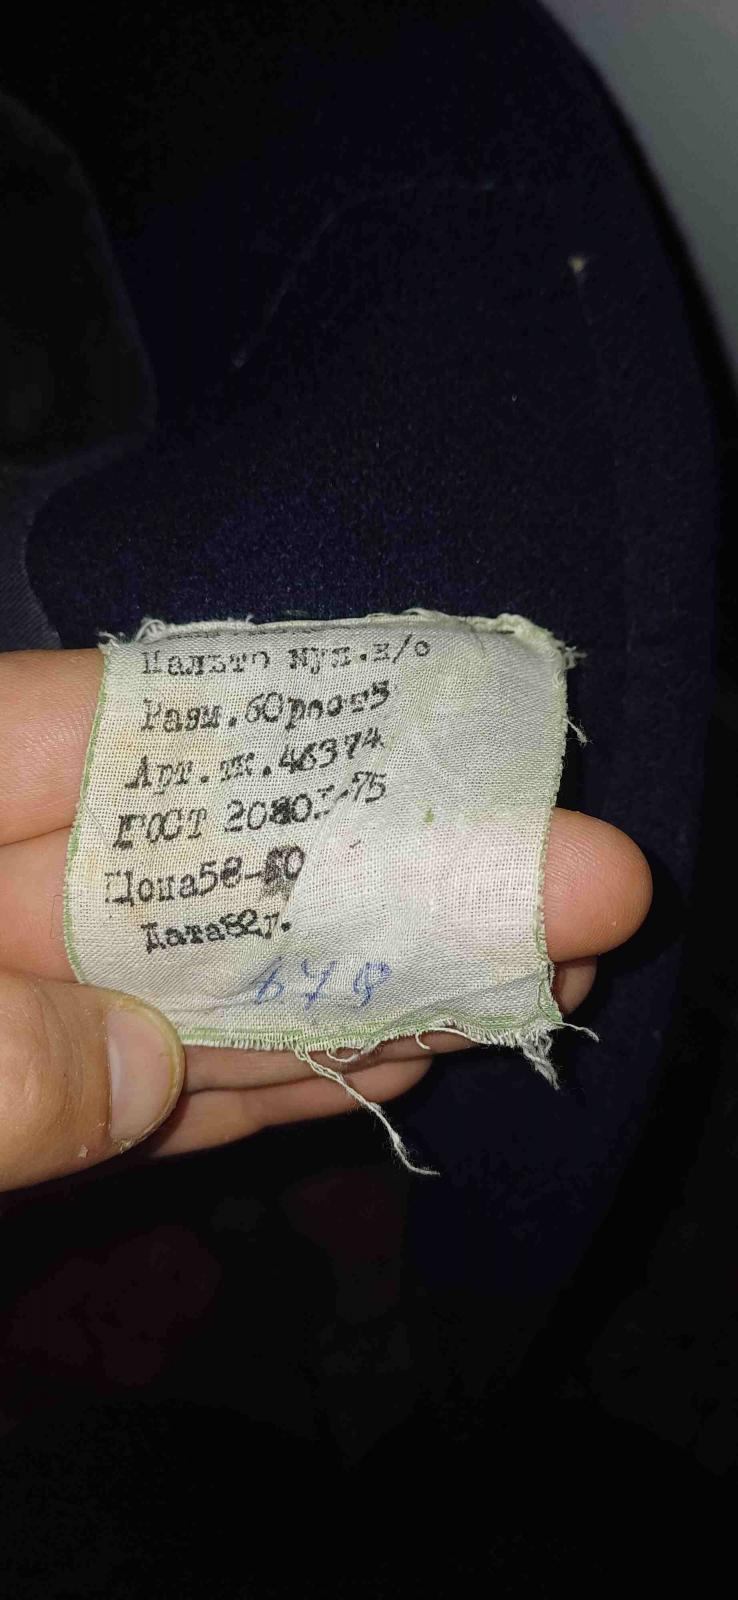 Пальто муж.н/о
Разм.60рост5
Арт.тк.46374
ГОСТ 20803-75
Цена58-
Дата82г.